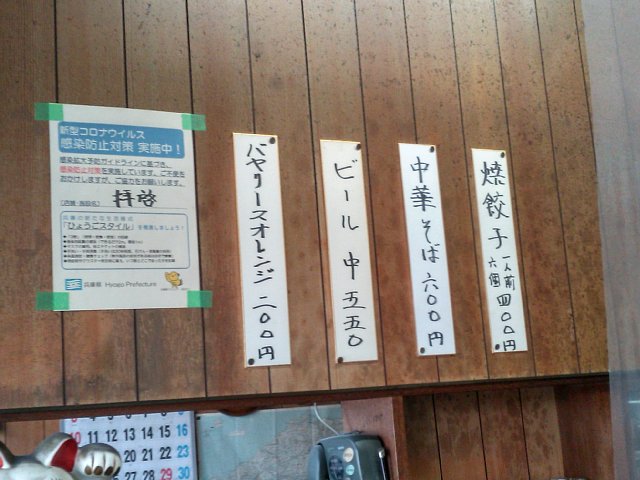 新型コロナウイルス
感染防止対策 実施中！
感染拡大予防ガイドラインに基づき、
感染防止対策を実施しています。ご不便を
おかけしますが、ご協力をお願いします。
(店舗・施設名) 拝啓
「ひょうごスタイル」を推進しましょう！
兵庫県 Hyogo Prefecture
バヤリースオレンジ 二〇〇円
ビール 中 五五〇
中華そば 六〇〇円
焼餃子 一人前 六個 四〇〇円
10 11 12 13 14 15 16
20 21 22 23
27 28 29 30